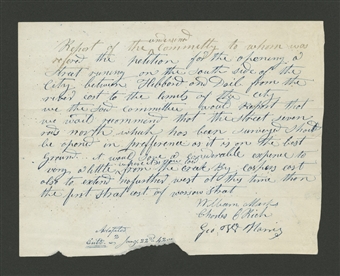 Report of the Committy to whom was
refered the petition for the opening a
Street runing on the South side of the
City between Hibbard and Dail from the
river east to the limits of the City
we the Committee would report that
we wold recommend that the street seven
rods north which has been surveyed Should
be opened in preference as it is on the best
ground it would save a considerable expence to
very a little from the east
also to extend west at this time than
the first Street east of warsaw Street
William Marks
Charles C Rich
Adopted